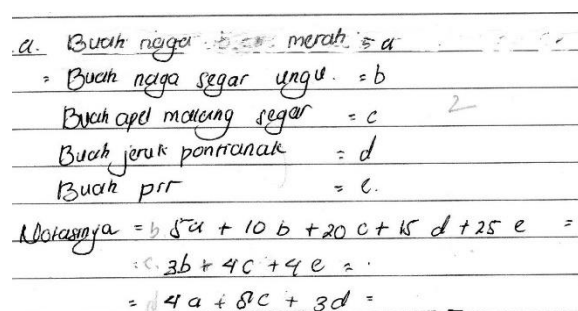 a. Buah naga merah = a
= Buah naga segar ungu. = b
Buah apel malang segar = c 2
Buah jeruk pontianak = d
Buah pir = e.
Notasinya = b 5a + 10 b + 20 c + 15 d + 25 e =
c. 3b + 4c + 4e = .
= d 4a + 8c + 3d =